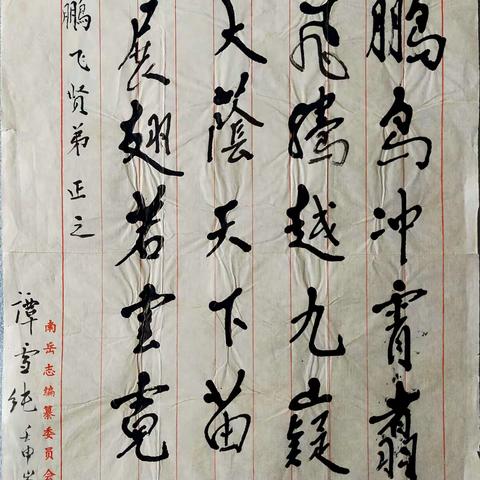 鹏鸟冲霄翥
飛騰越九嶷
大蔭天下苗
展翅若雲霓
鹏飞贤弟正之
譚雪纯 壬申岁
南岳志编纂委员会